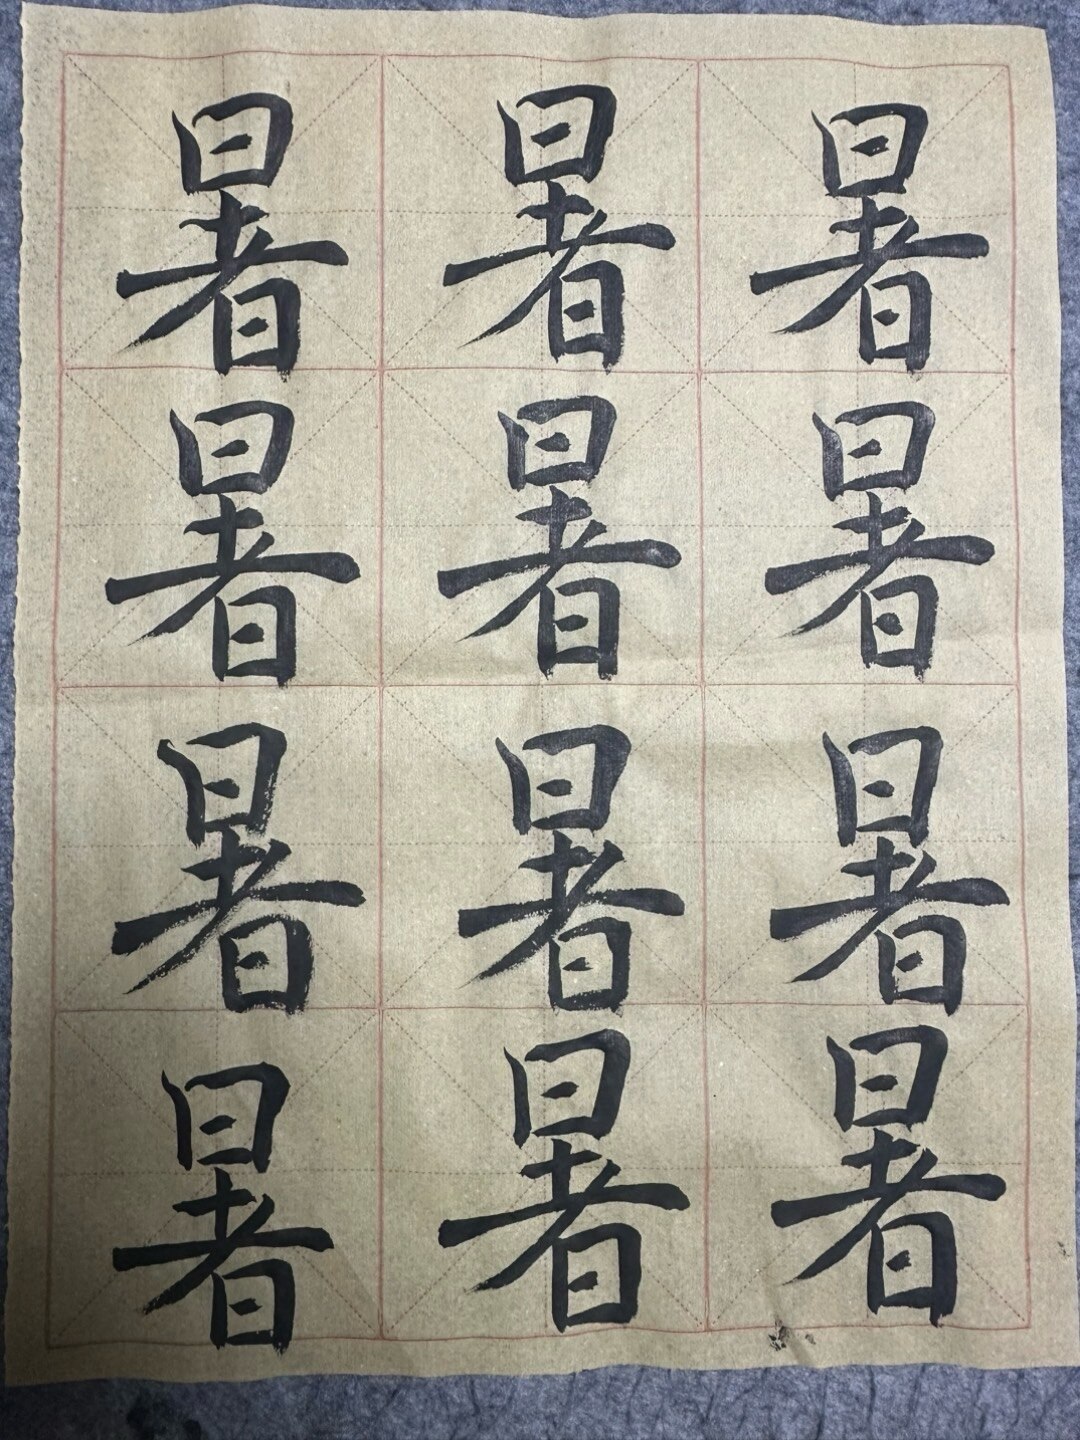 暑暑暑
暑暑暑
暑暑暑
暑暑暑